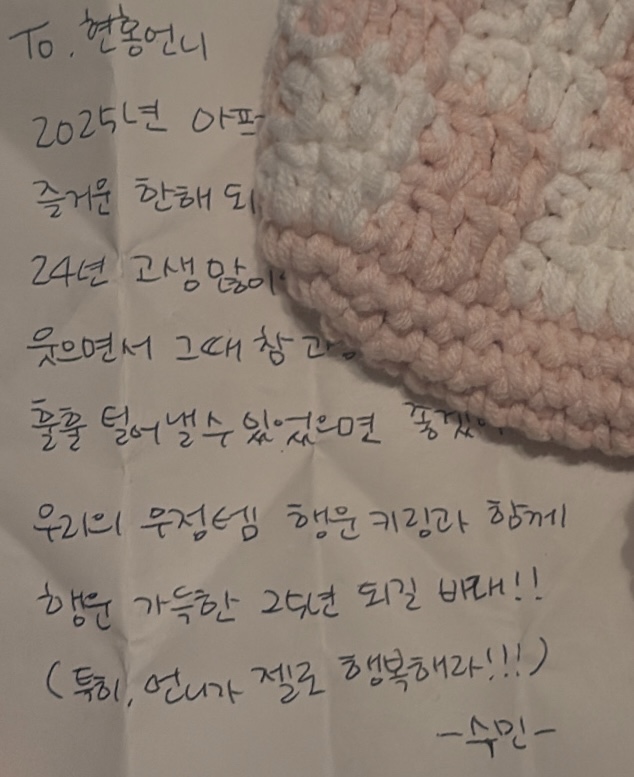 To. 현홍언니
2025년 아프
즐거운 한해 되
24년 고생 많이
웃으면서 그때 참
훌훌 털어 낼 수 있었으면 좋겠
우리의 우정템 행운 키링과 함께
행운 가득한 25년 되길 바래!!
(특히, 언니가 젤로 행복해라!!!)
-수민-